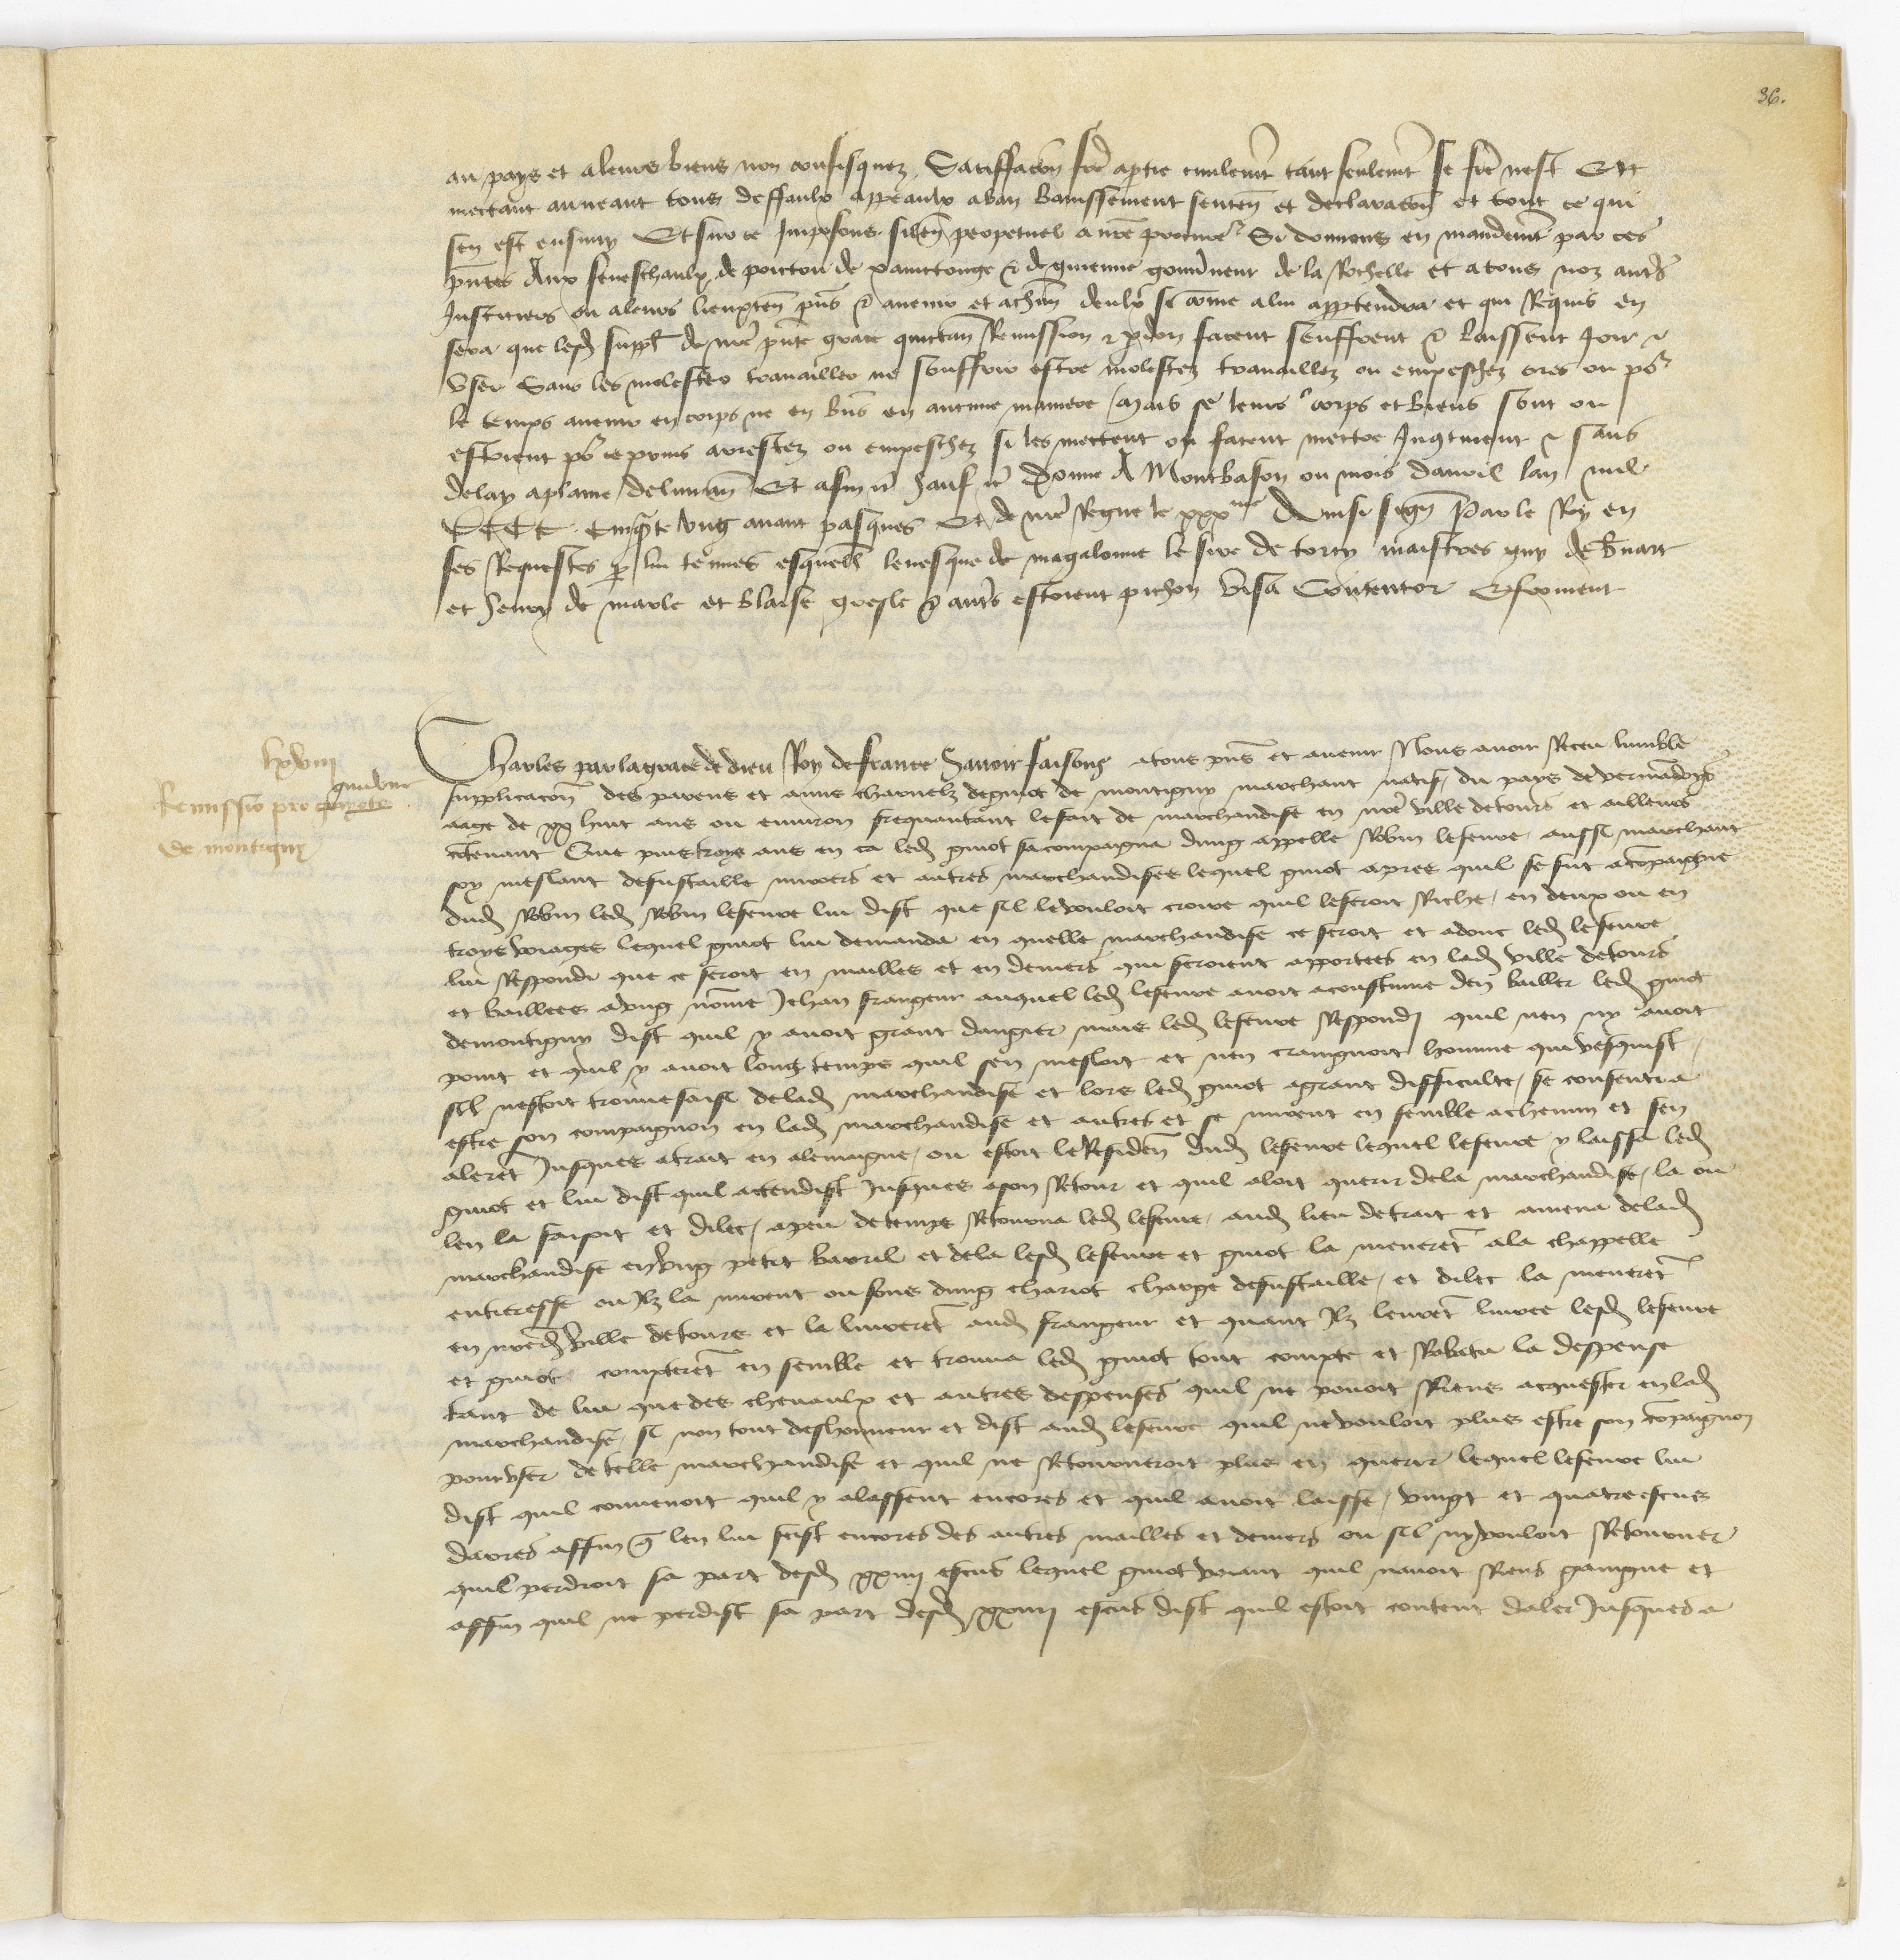 36.
au pays et a leurs biens non confisquez Satisffacion fce a partie civilemt tant seulemt se fce nest Et
mectant au neant tous deffaulx appeaulx a ban Banissement senten et declaracion et tout ce qui
sen est ensuiy Et sur ce Imposons silen perpetuel a nre procure Si donnons en mandemt par ces
pntes Aux seneschaulx de poictou de xainctonge & de guienne gouvneur de la Rochelle et a tous noz autrs
Justiciers ou a leurs lieuxten pns & avenir et a chun deulx si come a lui appartendra et qui Requis en
sera que lesd suppl de nre pnte grace quictan Remission & pdon facent seuffrent & laissent Joir &
User Sans les molester travailler ne souffrir estre molestez travaillez ou empeschez ores ou por
le temps avenir en corps ne en biens en aucune maniere Mais se leurs corps et biens sont ou
estoient por ce prins arrestez ou empeschez si les mectent ou facent mectre Incontinent & sans
delay a plaine delivran Et afin ec Sauf ec Donne A Montbason ou mois davril lan mil
CCCC Cinqte Ung avant pasques Et de nre Regne le xxxme Ainsi sign Par le Roy en
ses Requestes par lui tenues esquelles levesque de magalonne le sire de torcy maistres guy Bnart
et henry de marle et Blaise gresle & autrs estoient pichon Visa Contentor E froment
lxviii
guiour
Remissio pro guiote
de montigny
Charles par la grace de dieu Roy de france Savoir faisons a tous pns et avenir Nous avoir Receu lumble
supplicacion des parens et amis charnelz de guiot de montigny marchant natif du pays de vermandoys
aage de xx huit ans ou environ frequantant le fait de marchandise en nre ville de tours et ailleurs
contenant Que puis troys ans en ca led guiot sacompaigna dung appelle Robin lefevre aussi marchant
soy meslant de fustaille mirouers et autres marchandises lequel guiot apres quil se fut acompaigne
dud Robin led Robin lefevre lui dist que sil le vouloit croire quil le feroit Riche en deux ou en
troys voiages lequel guiot lui demanda en quelle marchandise ce seroit et adonc led lefevre
lui Respondi que ce seroit en mailles et en deniers qui seroient apportees en lad ville de tours
et baillees a ung nome Jehan frangeur auquel led lefevre avoit acoustume den bailler led guiot
de montigny dist quil y avoit grant dangier mais led lefevre Respondi quil nen ny avoit
point et quil y avoit long temps quil sen mesloit et nen craingnoit homme qui vesquist
sil nestoit trouve saisi de lad marchandise et lors led guiot a grant difficulte se consenti a
estre son compaignon en lad marchandise et autres et se mirent en semble a chemin et sen
aleret Jusques a trait en alemaigne ou estoit le Residen dud lefevre lequel lefevre y laissa led
guiot et lui dist quil actendist Jusques a son Retour et quil aloit querir de la marchandise la ou
len la faisoit et dilec apeu de temps Retourna led lefevre aud lieu de trait et amena de lad
marchandise en ung petit barril et de la lesd lefevre et guiot la meneret a la chappelle
entieresse ou Ilz la mirent ou fons dung chariot charge de fustaille et dilec la meneret
en nred ville de tours et la livreret aud frangeur et quant Ilz leuret livree lesd lefevre
et guiot compteret en semble et trouva led guiot tout compte et Rabatu la despense
tant de lui que des chevaulx et autres despenses quil ne povoit Riens acquester en lad
marchandise si non tout deshonneur et dist aud lefevre quil ne vouloit plus estre son compaignon
pour user de telle marchandise et quil ne Retourneroit plus en querir lequel lefevre lui
dist quil convenoit quil y alassent encores et quil avoit laisse vingt et quatre escus
darres affin q len lui feist encores des autres mailles et deniers ou sil ny vouloit Retourner
quil perdroit sa part desd xxiiii escus lequel guiot voiant quil navoit Riens gaingne et
affin quil ne perdist sa part desd xxiiii escus dist quil estoit content daler Jusques a